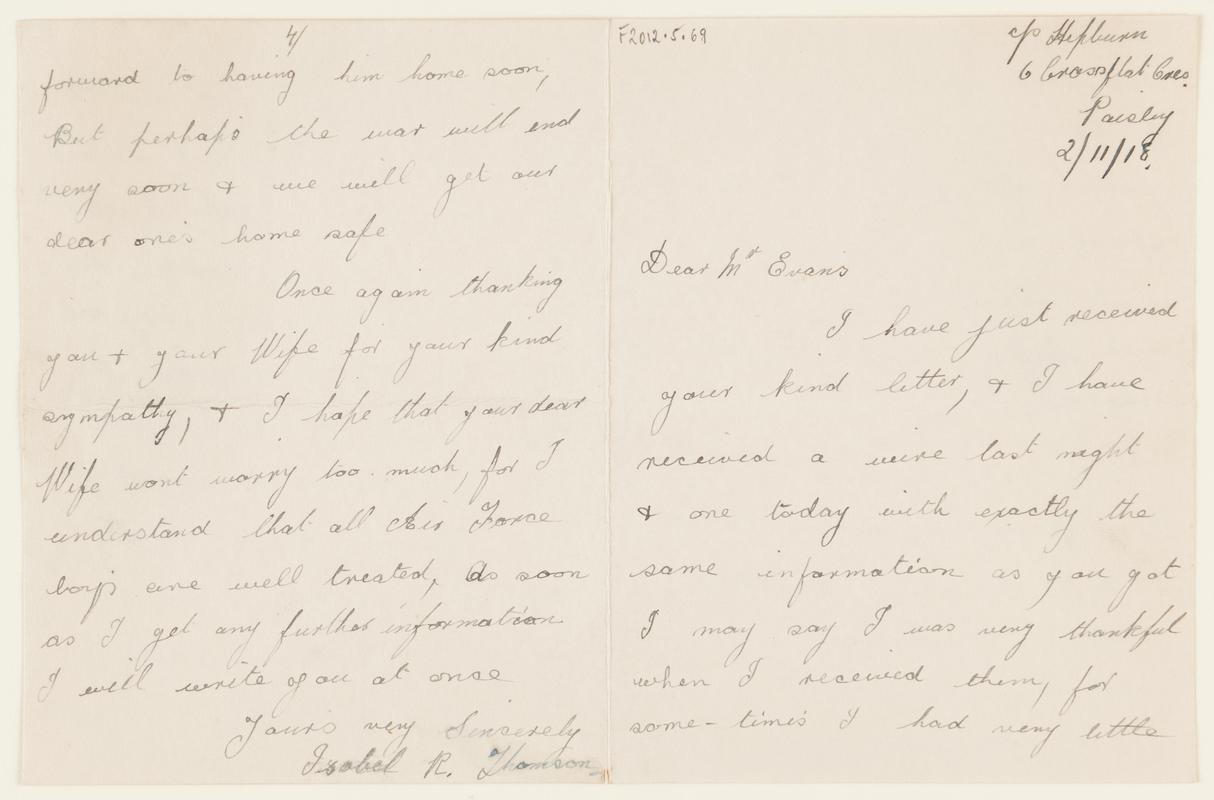 F2012.5.69
c/o Hepburn
6 Crossflat Cres.
Paisley
2/11/18.
Dear Mr Evans
I have just received
your kind letter, & I have
received a wire last night
& one today with exactly the
same information as you got
I may say I was very thankful
when I received them, for
some-times I had very little
4/
forward to having him home soon,
But perhaps the war will end
very soon & we will get our
dear one's home safe
Once again thanking
you & your Wife for your kind
sympathy, & I hope that your dear
Wife wont worry too much, for I
understand that all Air Force
boys are well treated, As soon
as I get any further information
I will write you at once
Yours very Sincerely
Isobel R. Thomson